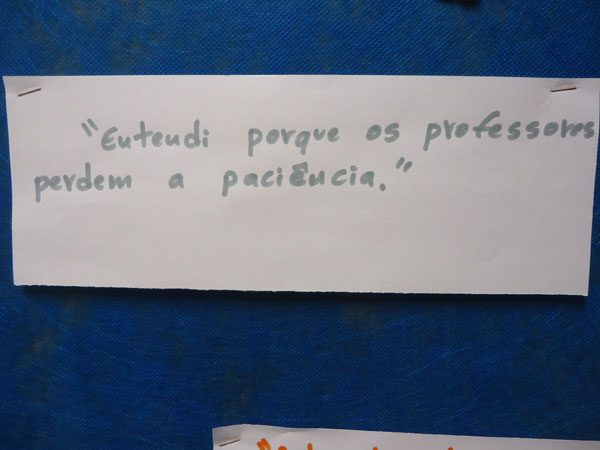 "Entendi porque os professores
perdem a paciência."